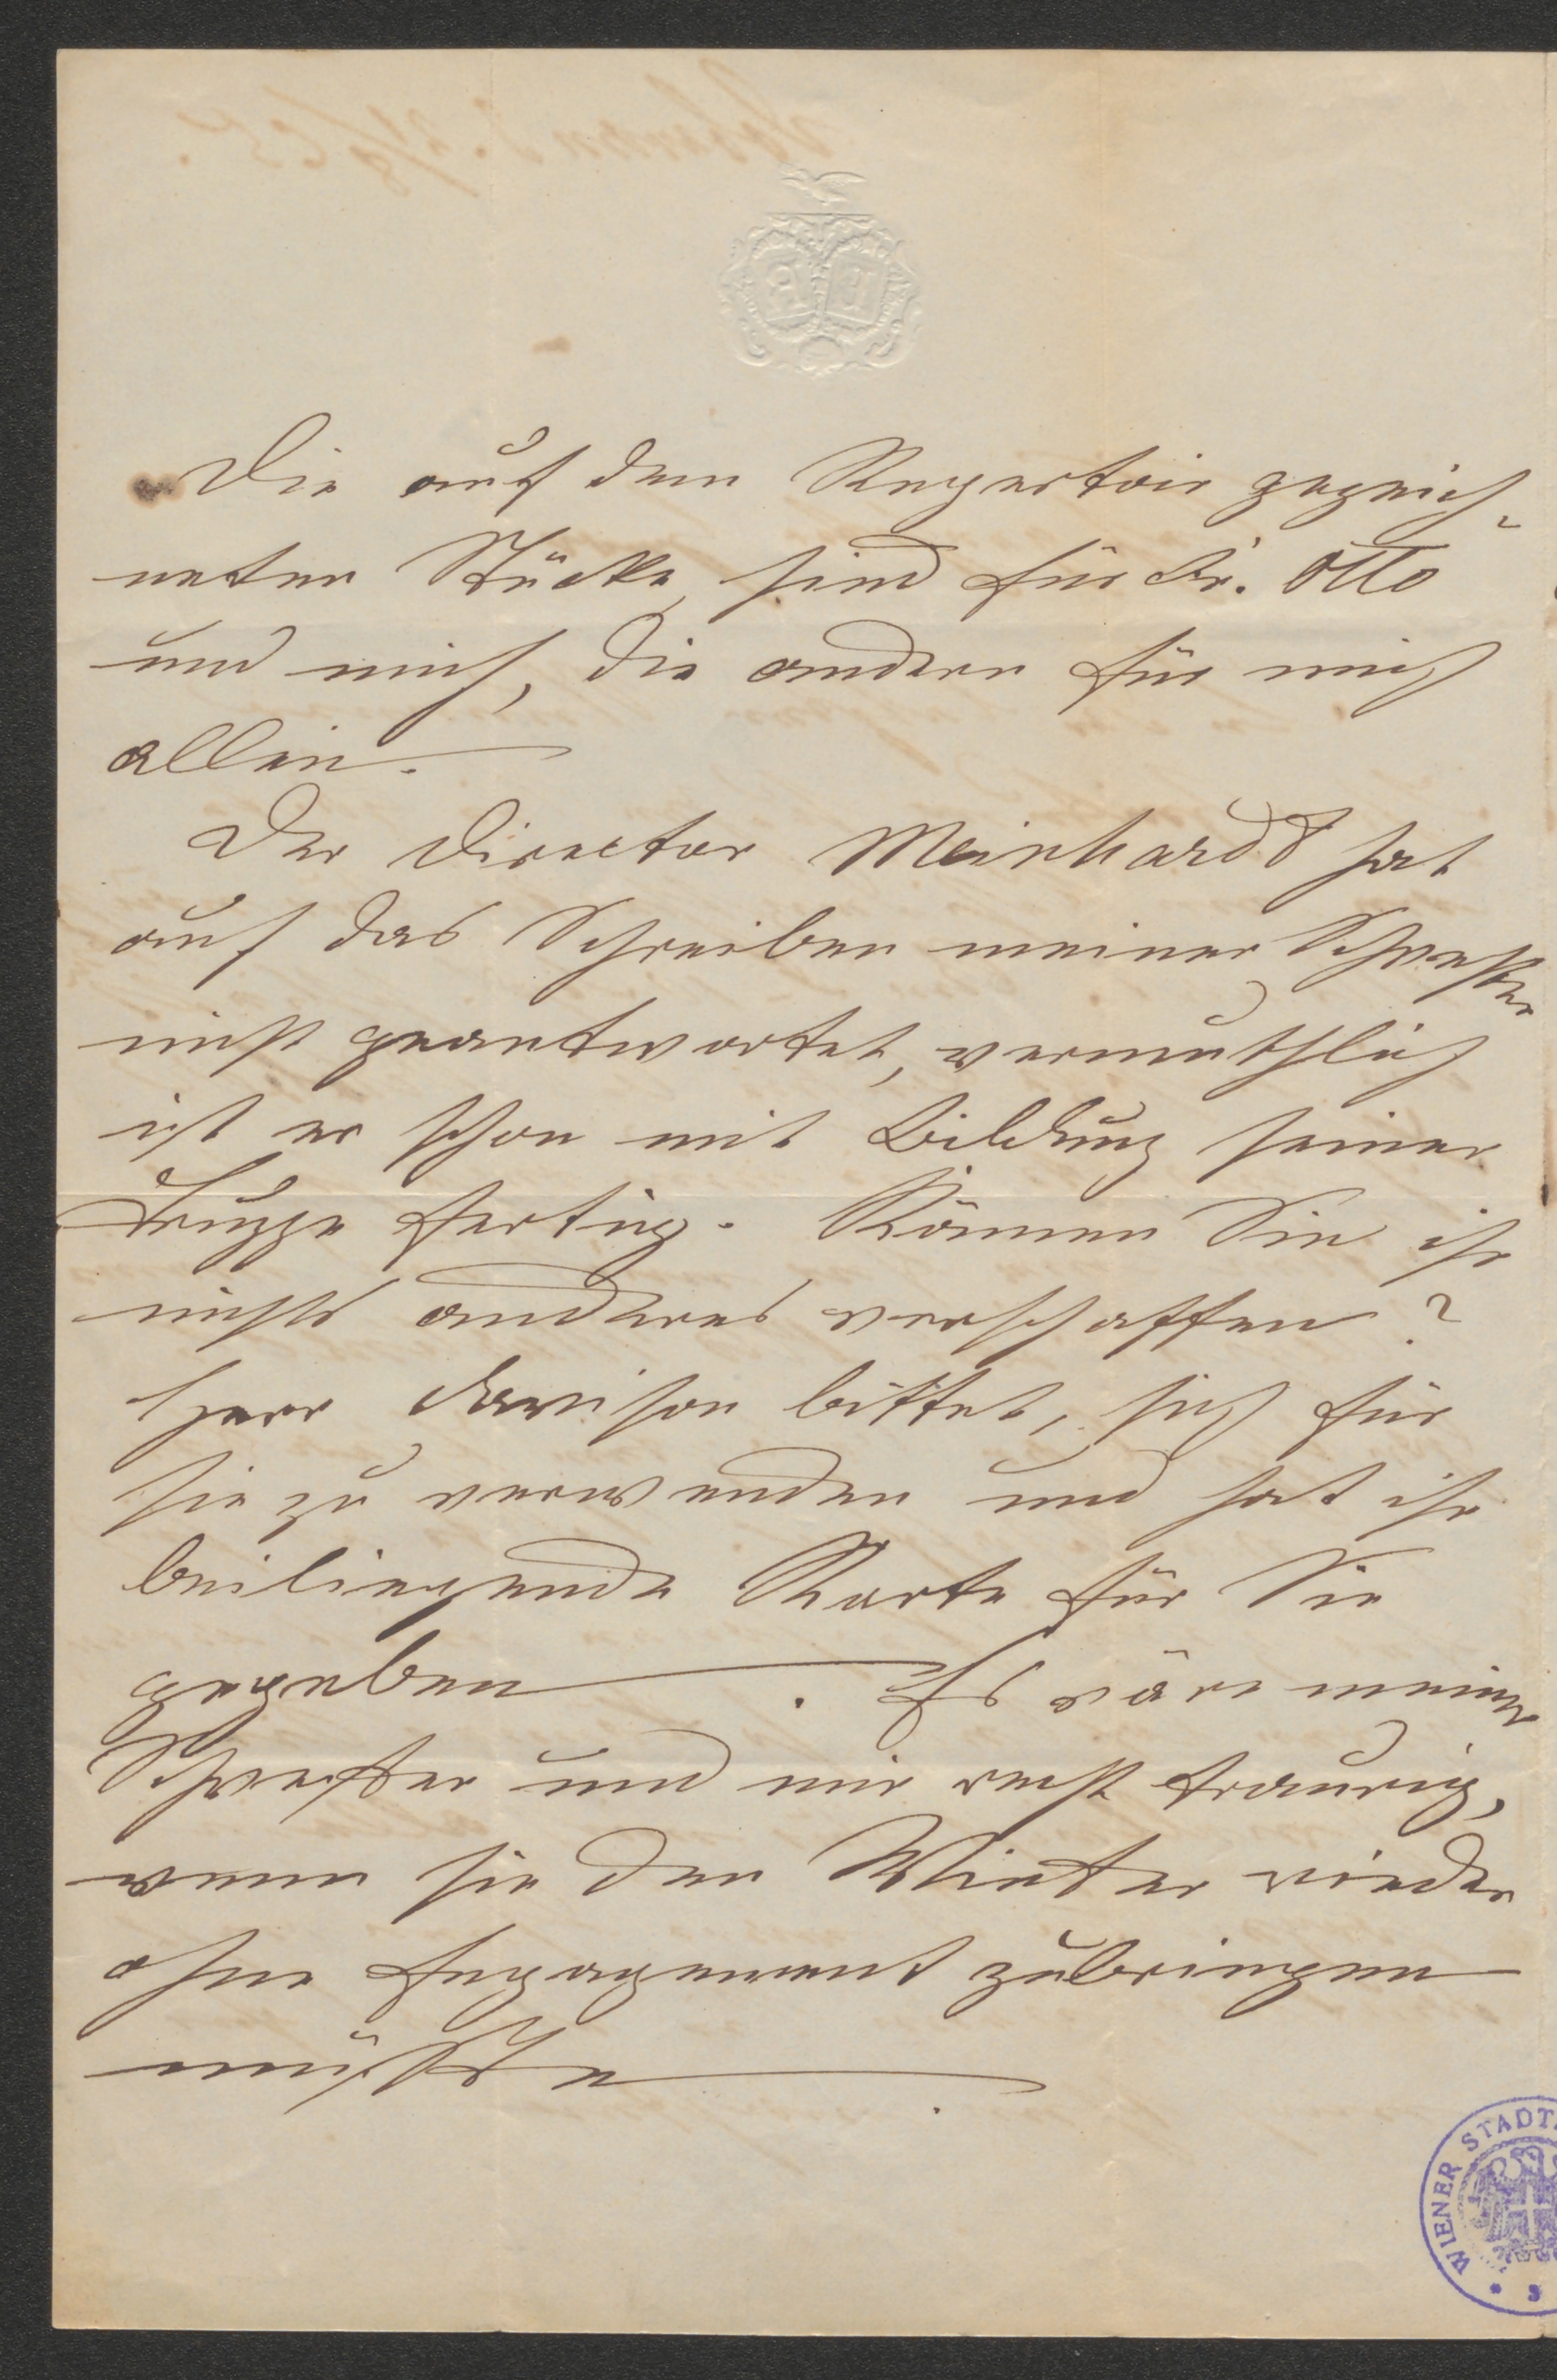 Die auf dem Repertoir gezeich-
neten Stücke sind für Dr. Otto
und mich, die andern für mich
allein.
Der Director Meinhardt hat
auf das Schreiben meiner Schwester
nicht geantwortet, vermuthlich
ist er schon mit Bildung seiner
Truppe fertig. Können Sie ihr
nichts anderes verschaffen?
Herr Dawison bittet, sich für
sie zu verwenden und hat ihr
beiliegende Karte für Sie
gegeben. Es wäre meiner
Schwester und mir recht traurig,
wenn sie den Winter wieder
ohne Engagement zubringen
müßte.
WIENER STADT